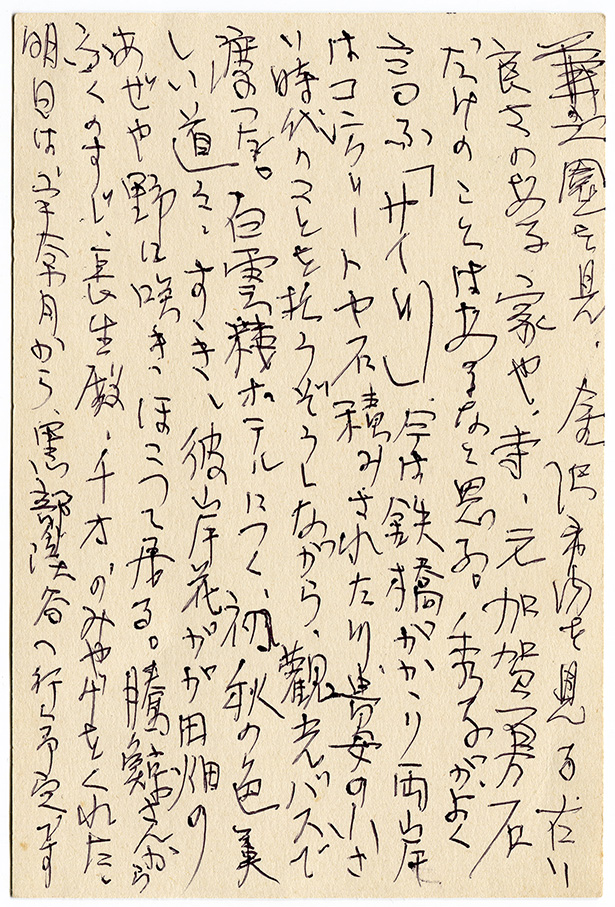 兼六園を見、金沢市内を見る 古い
良さのある家や、寺、元加賀百万石
だけのことはあるなと思る。秀子がよく
言ふ「サイ川」今は鉄橋がかかり両岸
はコンクリートや石積みされたり
い時代のことを想うぞうしながら、観光バスで
白雲楼ホテルにつく、初秋の色美
しい道々、すすき、彼岸花がが田畑の
あぜや野に咲きほこって居る。さんから
ふくのすじ、長生殿、千才のみやげをくれた。
明日は宇奈月から、黒部渓谷へ行く予定です